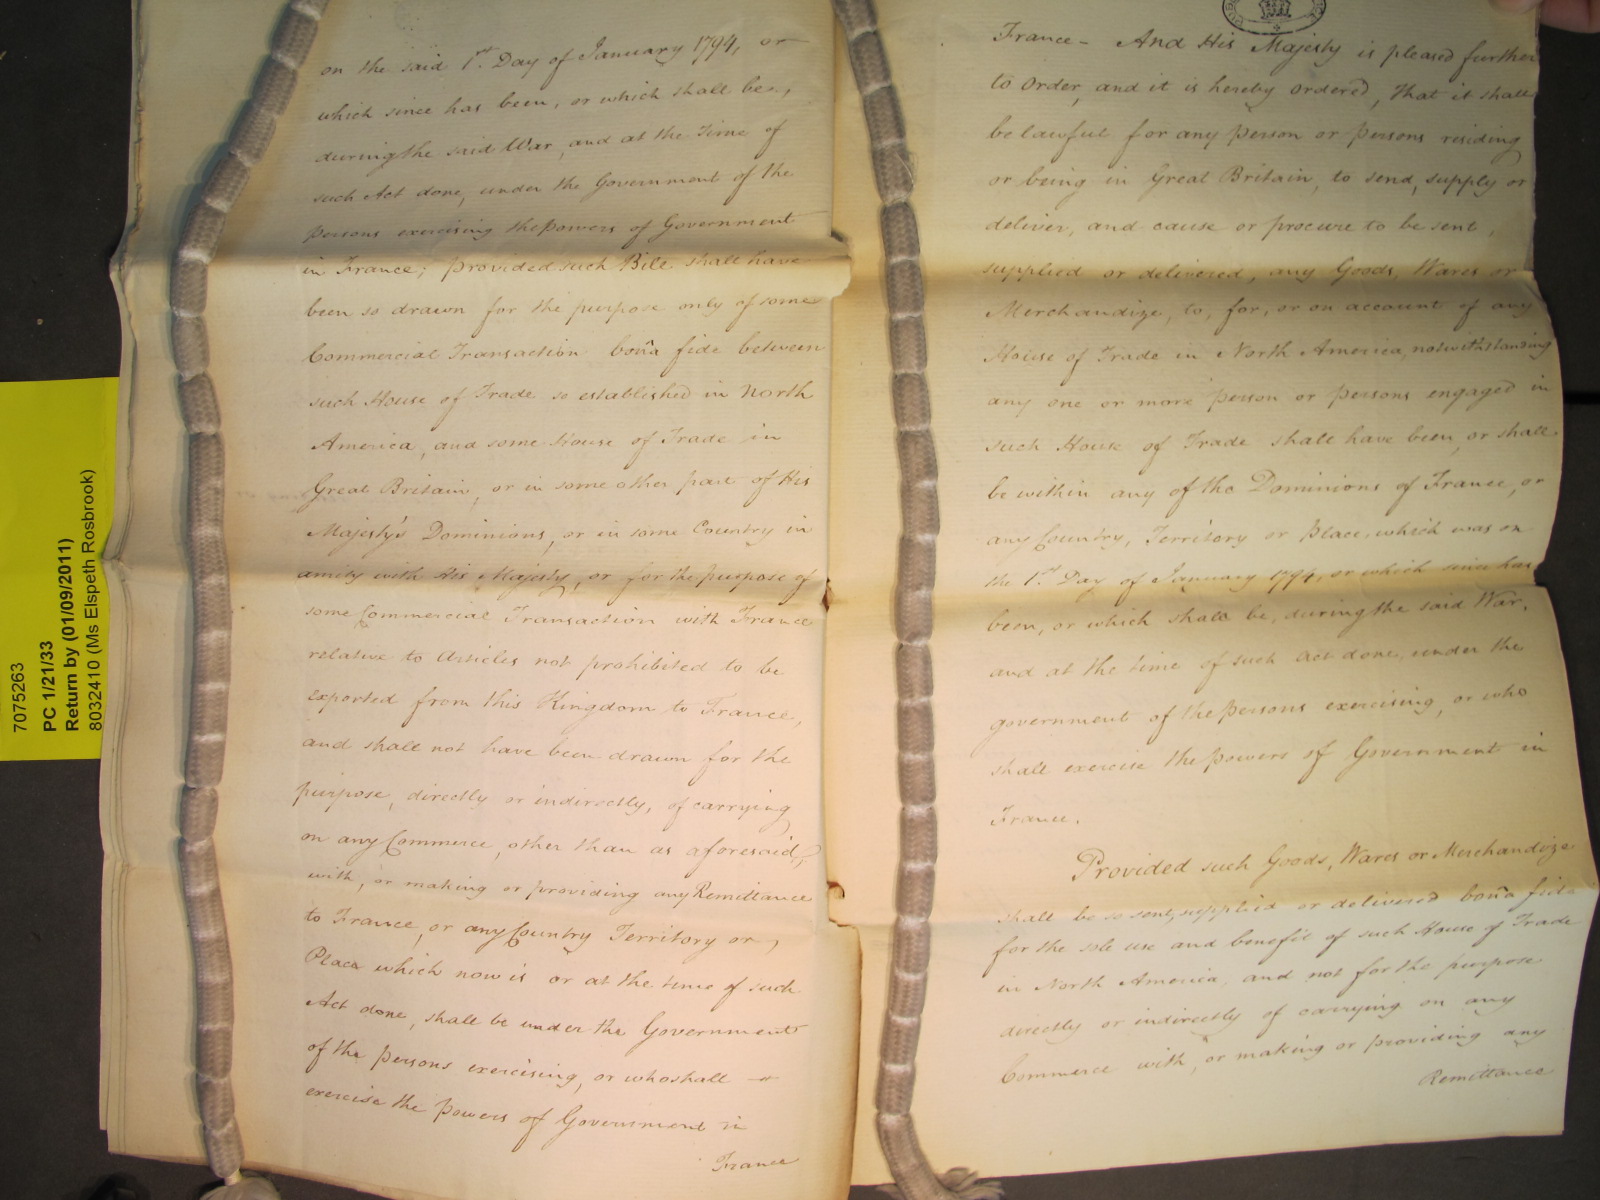 on the said 1st. Day of January 1794, or
which since has been, or which shall be,
during the said War, and at the Time of
such Act done, under the Government of the
persons exercising the powers of Government
in France; provided such Bill shall have
been so drawn for the purpose only of some
Commercial Transaction bonâ fide between
such House of Trade so established in North
America, and some House of Trade in
Great Britain, or in some other part of His
Majesty's Dominions, or in some Country in
amity with His Majesty, or for the purpose of
some Commercial Transaction with France
relative to Articles not prohibited to be
exported from this Kingdom to France,
and shall not have been drawn for the
purpose, directly or indirectly, of carrying
on any Commerce, other than as aforesaid,
with, or making or providing any Remittance
to France, or any Country Territory or,
Place which now is or at the time of such
Act done, shall be under the Government
of the persons exercising, or who shall
exercise the powers of Government in
France
France - And His Majesty is pleased further
to Order, and it is hereby ordered, That it shall
be lawful for any person or persons residing
or being in Great Britain, to send, supply or
deliver, and cause or procure to be sent,
supplied or delivered, any Goods, Wares or
Merchandize, to, for, or on account of any
House of Trade in North America, notwithstanding
any one or more person or persons engaged in
such House of Trade shall have been, or shall
be within any of the Dominions of France, or
any Country, Territory or Place, which was on
the 1st Day of January 1794, or which since has
been, or which shall be, during the said War,
and at the time of such act done, under the
government of the persons exercising, or who
shall exercise the powers of Government in
France.
Provided such Goods, Wares or Merchandize
shall be so sent, supplied or delivered bonâ fide
for the sole use and benefit of such House of Trade
in North America, and not for the purpose
directly or indirectly of carrying on any
Commerce with, or making or providing any
Remittance
7075263
PC 1/21/33
Return by (01/09/2011)
8032410 (Ms Elspeth Rosbrook)